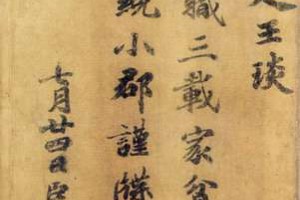 王琰
職三載家貧
統小郡謹牒
七月廿四日臣